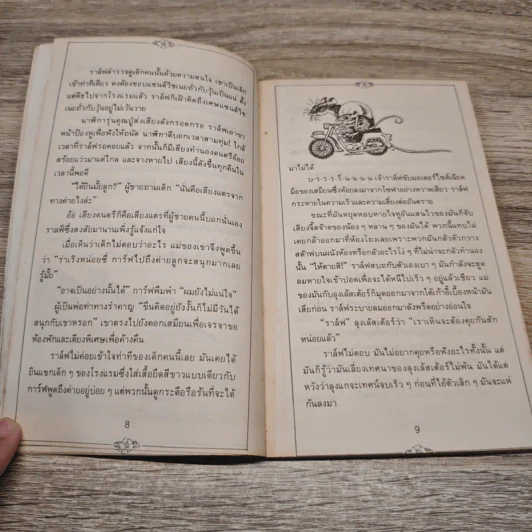 ราล์ฟสำรวจดูเด็กคนนั้นด้วยความสนใจ เขาเป็นเด็ก
เข้าท่าทีเดียว คงต้องชอบแซนด์วิชเนยถั่วกับวุ้นเป็นแน่ ตั้ง
แต่คิทไปจากโรงแรมแล้ว ราล์ฟก็เฝ้าคิดถึงเศษแซนด์วิช
เนยถั่วกับวุ้นอยู่ไม่เว้นวาย
นาฬิการุ่นคุณปู่ส่งเสียงดังกรอดกรอ ราล์ฟเอาขา
หน้าป้องหูเพื่อฟังให้ถนัด นาฬิกาตีบอกเวลาสามทุ่ม! ใกล้
เวลาที่ราล์ฟรอคอยแล้ว จากนั้นก็มีเสียงทำนองดนตรีค่อย
สร้อยแว่วมาแต่ไกล และจางหายไป เสียงนี้ดังขึ้นทุกคืนใน
เวลานี้พอดี
"ได้ยินมั้ยลูก?" ผู้ชายถามเด็ก "นั่นคือเสียงแตรจาก
ทางค่ายไงล่ะ"
อ้อ เสียงดนตรีก็คือเสียงแตรที่ผู้ชายคนนี้บอกนั่นเอง
ราล์ฟซึ่งสงสัยมานานเพิ่งรู้แจ้งแก่ใจ
เมื่อเห็นว่าเด็กไม่ตอบว่าอะไร แม่ของเขาจึงพูดขึ้น
ว่า "ร่าเริงหน่อยซี่ การ์ฟไปถึงค่ายลูกจะสนุกมากเลย
รู้มั้ย"
"อาจเป็นอย่างนั้นได้" การ์ฟพึมพำ "ผมยังไม่แน่ใจ"
ผู้เป็นพ่อท่าทางรำคาญ "ขืนคิดอยู่ยังงั้นก็ไม่มีวันได้
สนุกกับเขาหรอก" เขาตรงไปยังคอกเสมียนเพื่อเจรจาขอ
ห้องพักและเตียงพิเศษเพื่อค้างคืน
ราล์ฟไม่ค่อยเข้าใจท่าทีของเด็กคนนี้เลย มันเคยได้
ยินแขกเด็ก ๆ ของโรงแรมซึ่งใส่เสื้อยืดสีขาวแบบเดียวกับ
การ์ฟพูดถึงค่ายอยู่บ่อย ๆ แต่พวกนั้นดูกระตือรือร้นที่จะได้
8
มาไม่ได้
บ-ร-ร-ร-รื-น-น-น-น เจ้าราล์ฟขับมอเตอร์ไซค์เฉียด
มือของเสมียนซึ่งห้อยลงมาจากโซฟาอย่างหวาดเสียว ราล์ฟ
กระหายในความเร็วและความเสี่ยงต่ออันตราย
ขณะที่มันหยุดหอบหายใจหูอันแสนไวของมันก็จับ
เสียงจี๊ดจ๊าดของน้อง ๆ หลาน ๆ ของมันได้ พวกนี้แทบไม่
เคยกล้าออกมาที่ห้องโถงเลยเพราะพวกมันกลัวหัวกวาง
สตัฟบนผนังห้องหรือกลัวอะไรโง่ ๆ ที่ไม่น่าจะกลัวทำนอง
นั้น "ให้ตายสิ!" ราล์ฟสบถกับตัวเองเบา ๆ มันกำลังจะสูด
ลมหายใจเข้าปอดเพื่อจะได้หนีไปเร็ว ๆ อยู่แล้วเชียว แม่
ของมันกับลุงเลิสเตอร์ก็มุดออกมาจากใต้เก้าอี้เบื้องหน้ามัน
เสียก่อน ราล์ฟระบายลมออกมาดังพรืดอย่างอ่อนใจ
"ราล์ฟ" ลุงเลิสเตอร์ว่า "เราเห็นจะต้องคุยกันสัก
หน่อยแล้ว"
ราล์ฟไม่ตอบ มันไม่อยากคุยหรือฟังอะไรทั้งนั้น แต่
มันก็รู้ว่ามันเลี่ยงเทศนาของลุงเลิสเตอร์ไม่พ้น มันได้แต่
หวังว่าลุงแกจะเทศน์จบเร็ว ๆ ก่อนที่ไอ้ตัวเล็ก ๆ มันจะแห่
กันลงมา
9